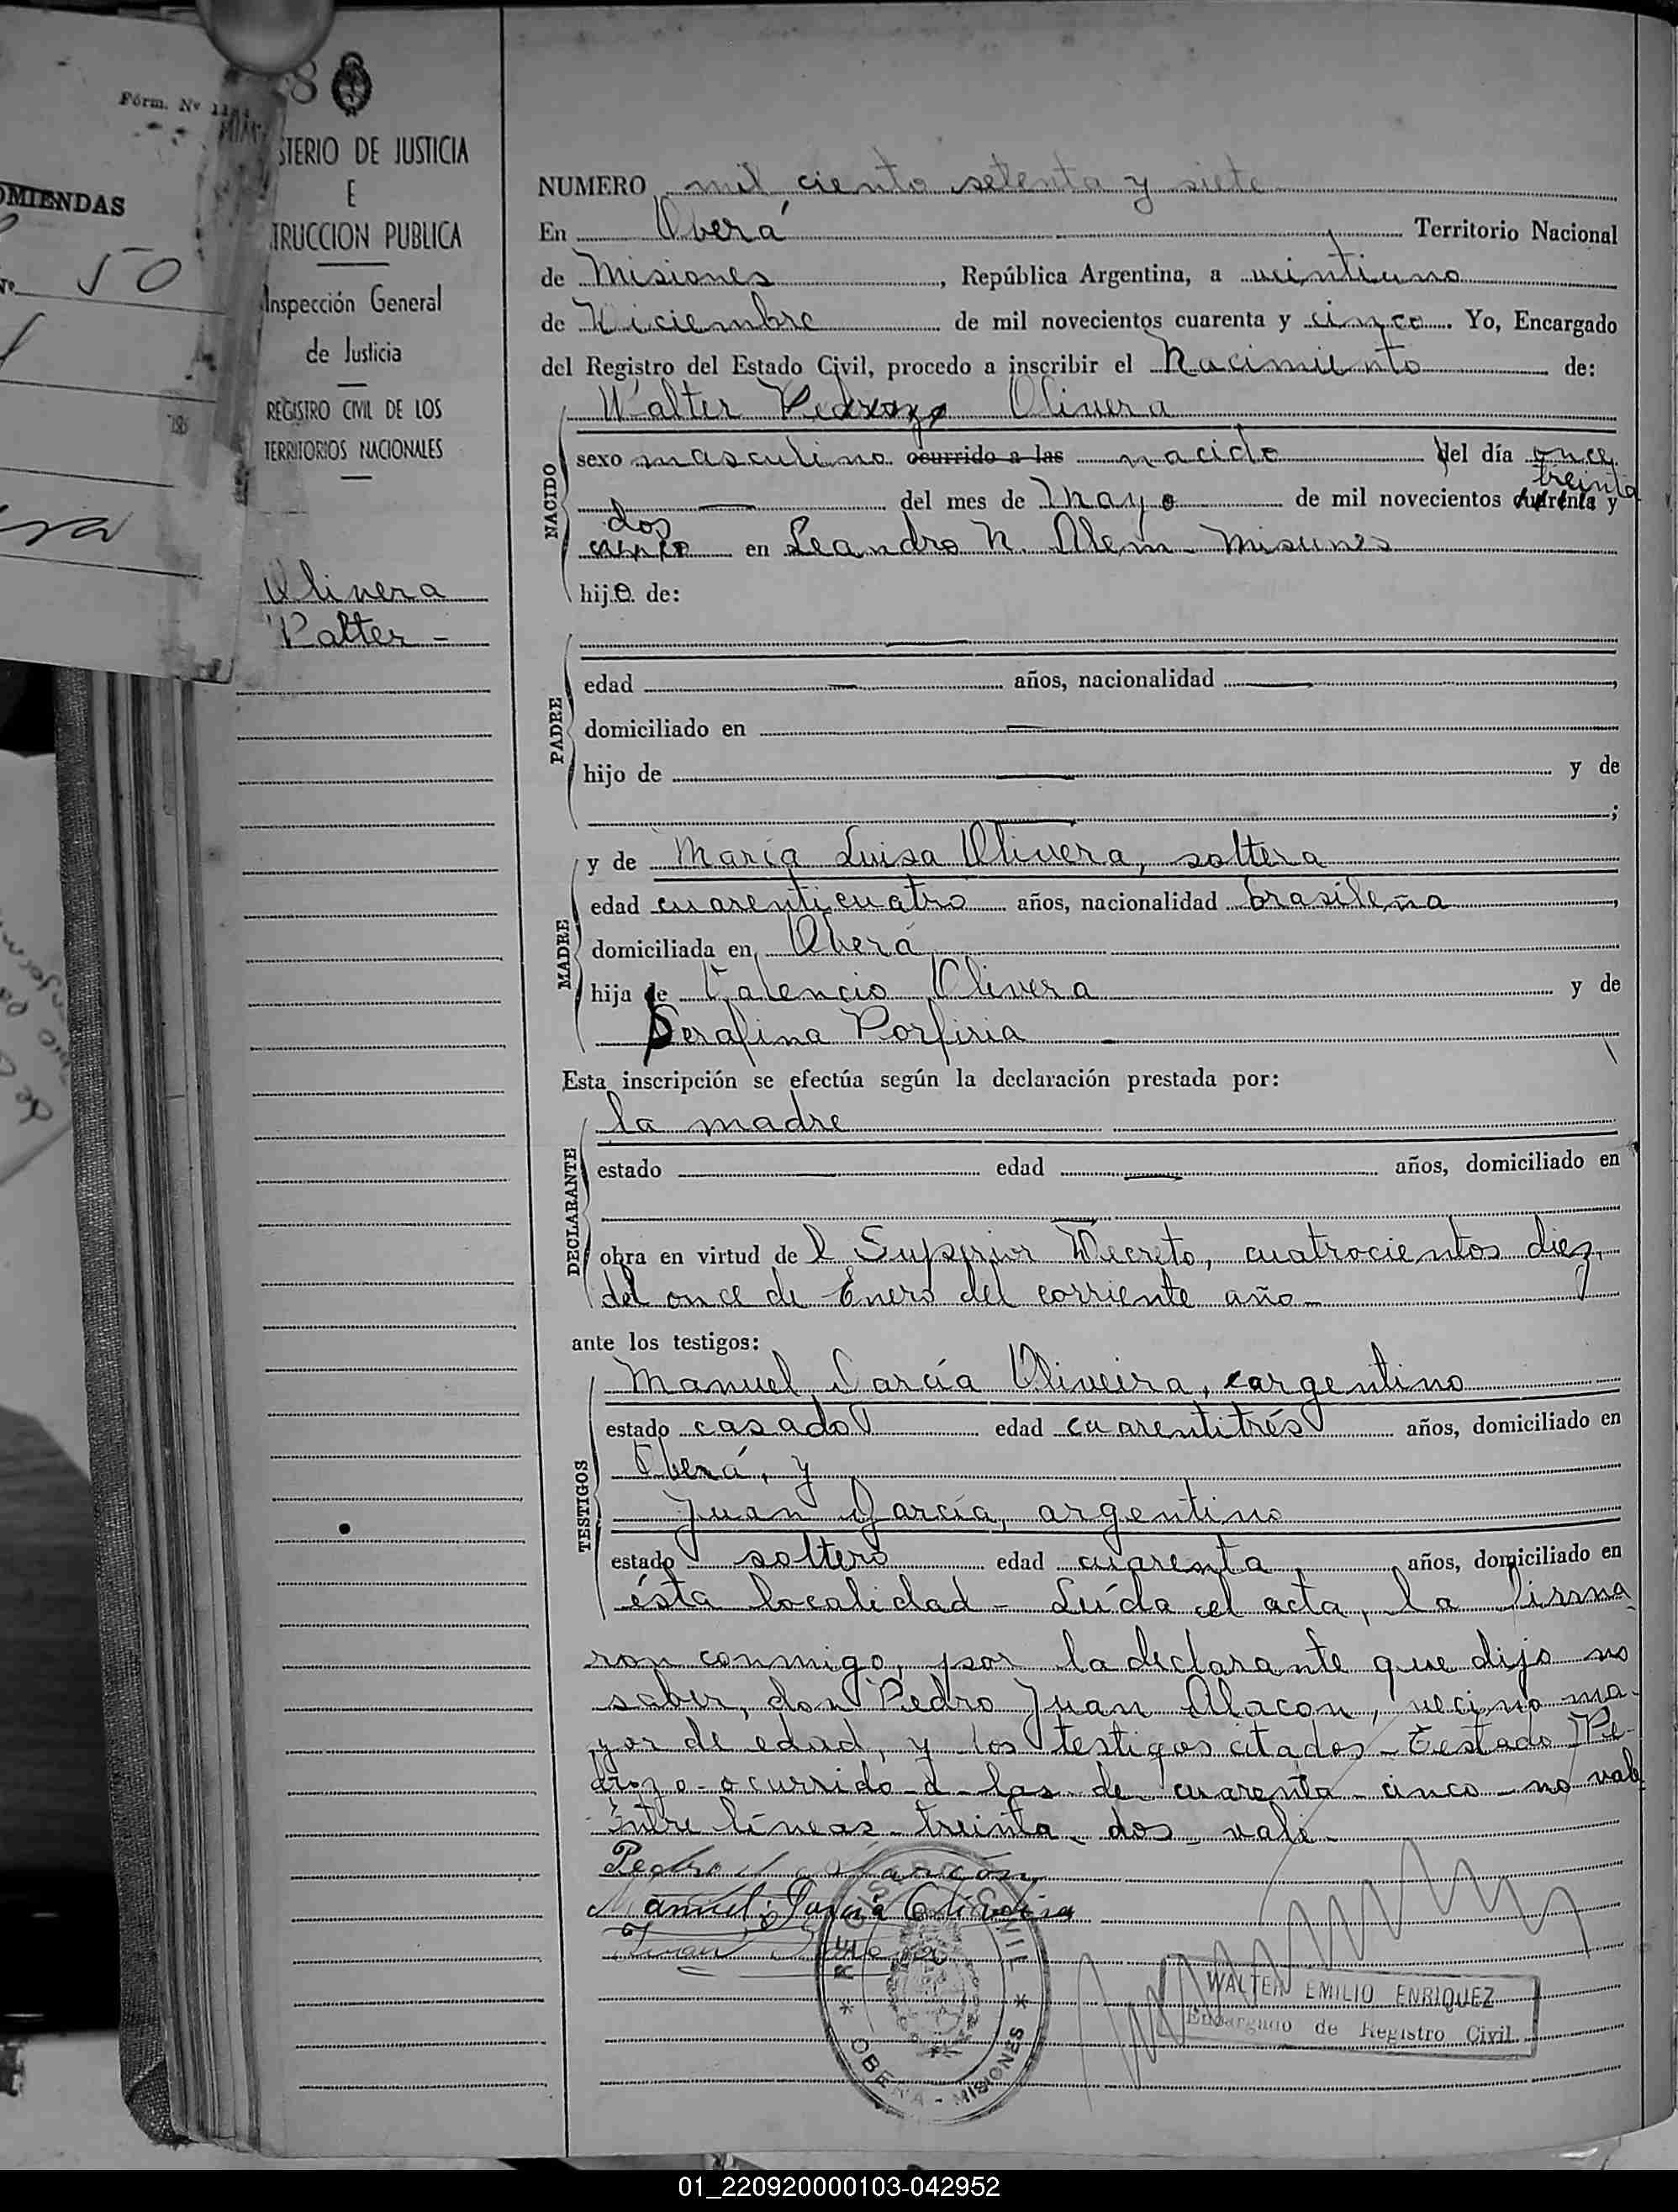 Fórm. Nº
OMIENDAS
Nº 50
8
STERIO DE JUSTICIA
E
TRUCCION PUBLICA
Inspección General
de Justicia
REGISTRO CIVIL DE LOS
TERRITORIOS NACIONALES
Olivera
Walter -
NUMERO mil ciento setenta y siete
En Oberá Territorio Nacional
de Misiones, República Argentina, a veintiuno
de Diciembre de mil novecientos cuarenta y cinco. Yo, Encargado
del Registro del Estado Civil, procedo a inscribir el Nacimiento de:
Walter Pedrozo Olivera
NACIDO
sexo masculino ocurrido a las nacido del día once
treinta
del mes de Mayo de mil novecientos cuarenta y
dos
cinco en Leandro N. Alem - Misiones
hijo de:
PADRE
edad años, nacionalidad
domiciliado en
hijo de y de
;
MADRE
y de María Luisa Olivera, soltera
edad cuarenticuatro años, nacionalidad brasileña,
domiciliada en Oberá
hija de Valencio Olivera y de
Serafina Porfiria
Esta inscripción se efectúa según la declaración prestada por:
DECLARANTE
la madre
estado edad años, domiciliado en
obra en virtud del Superior Decreto, cuatrocientos diez,
del once de Enero del corriente año -
ante los testigos:
TESTIGOS
Manuel García Oliveira, argentino
estado casado edad cuarentitrés años, domiciliado en
Oberá, y
Juan García, argentino
estado soltero edad cuarenta años, domiciliado en
ésta localidad - Leída el acta, la firma
ron conmigo, por la declarante que dijo no
saber, don Pedro Juan Alacon, vecino ma-
yor de edad, y los testigos citados - Testado Pe-
drozo - ocurrido - a - las - de - cuarenta - cinco - no vale
Entre líneas - treinta - dos - vale -
Pedro J Alarcón
Manuel García Oliveira
Juan
REGISTRO CIVIL
* OBERA - MISIONES *
WALTER EMILIO ENRIQUEZ
Encargado de Registro Civil
01_220920000103-042952